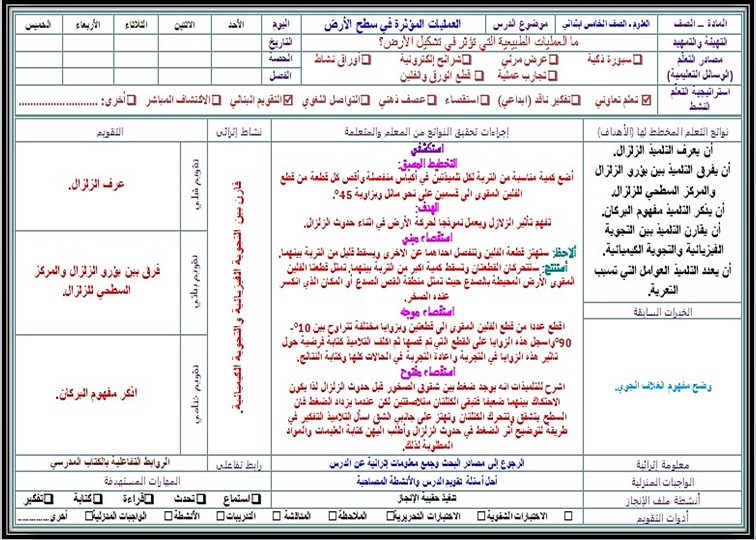 المادة – الصف العلوم - الصف الخامس ابتدائي موضوع الدرس العمليات المؤثرة في سطح الأرض اليوم الأحد الاثنين الثلاثاء الأربعاء الخميس
التهيئة والتمهيد ما العمليات الطبيعية التي تؤثر في تشكيل الأرض؟ التاريخ
مصادر التعلم (الوسائل التعليمية) سبورة ذكية عرض مرئي شرائح إلكترونية أوراق نشاط الحصة
تجارب عملية قطع الورق والفلين الفصل
استراتيجية التعلم النشط تعلم تعاوني تفكير ناقد (ابداعي) استقصاء عصف ذهني التواصل اللغوي التقويم البنائي الاكتشاف المباشر أخرى: ............................
نواتج التعلم المخطط لها (الأهداف) إجراءات تحقيق النواتج من المعلم والمتعلمة نشاط إثرائي التقويم
أن يعرف التلميذ الزلزال.
أن يفرق التلميذ بين بؤرو الزلزال
والمركز السطحي للزلزال.
أن يذكر التلميذ مفهوم البركان.
أن يقارن التلميذ بين التجوية
الفيزيائية والتجوية الكيميائية.
أن يعدد التلميذ العوامل التي تسبب
التعرية.
الخبرات السابقة
وضح مفهوم الغلاف الجوي.
استكشفي
التخطيط المسبق:
أضع كمية مناسبة من التربة لكل تلميذتين في أكياس منفصلة وأقص كل قطعة من قطع
الفلين المقوى الى قسمين على نحو مائل وبزاوية 45°.
الهدف:
تفهم تأثير الزلازل ويعمل نموذجا لحركة الأرض في اثناء حدوث الزلزال.
استقصاء مبني
ألاحظ: ستهتز قطعة الفلين وتنفصل احداهما عن الاخرى ويسقط قليل من التربة بينهما.
أستنتج: ستتحركان القطعتان وتسقط كمية اكبر من التربة بينهما. تمثل قطعتا الفلين
المقوى الأرض المحيطة بالصدع حيث تمثل منطقة القص الصدع أو المكان الذي انكسر
عنده الصخر.
استقصاء موجه
اقطع عددا من قطع الفلين المقوى الى قطعتين وبزوايا مختلفة تتراوح بين 10°-
90°واسجل هذه الزوايا على القطع التي تم قصها ثم اكلف التلاميذ كتابة فرضية حول
تاثير هذه الزوايا في التجربة واعادة التجربة في الحالات كلها وكتابة النتائج.
استقصاء مفتوح
اشرح للتلميذات انه يوجد ضغط بين شقوق الصخور قبل حدوث الزلزال لذا يكون
الاحتكاك بينهما ضعيفا فتبقى الكتلتان متلاصقتين لكن عندما يزداد الضغط فان
السطح يتشقق وتتحرك الكتلتان وتهتز على جانبي الشق اسأل التلاميذ التفكير في
طريقه لتوضيح أثر الضغط في حدوث الزلزال وأطلب اليهن كتابة العليمات والمواد
المطلوبة لذلك.
قارن بين التجوية الفيزيائية والتجوية الكيميائية.
تقويم قبلي عرف الزلزال.
تقويم بنائي فرق بين بؤرو الزلزال والمركز
السطحي للزلزال.
تقويم ختامي اذكر مفهوم البركان.
معلومة إثرائية الرجوع إلى مصادر البحث وجمع معلومات إدرائية عن الدرس رابط تفاعلي الروابط التفاعلية بالكتاب المدرسي
الواجبات المنزلية أحل أسئلة تقويم الدرس والأنشطة المصاحبة المهارات المستهدفة
أنشطة ملف الإنجاز تنفيذ حقيبة الإنجاز استماع تحدث قراءة كتابة تفكير
أدوات التقويم الاختبارات الشفوية الاختبارات التحريرية الملاحظة المناقشة التدريبات الأنشطة الواجبات المنزلية أخرى...............